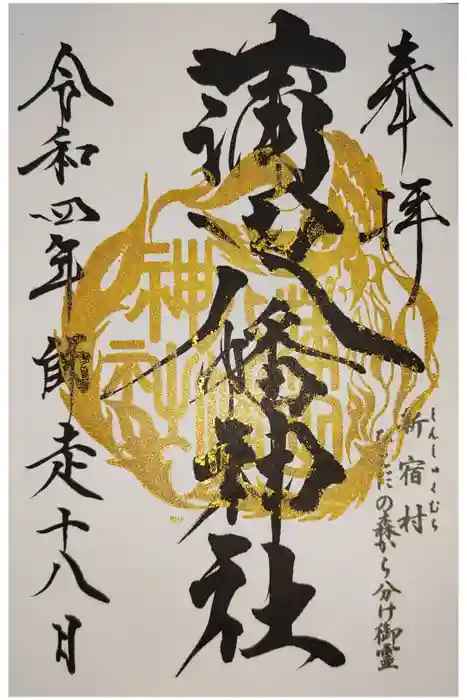 奉拝
しんしゅくむら
新宿村
の森から分け御霊
蒲田八幡神社
神社
令和四年師走十八日